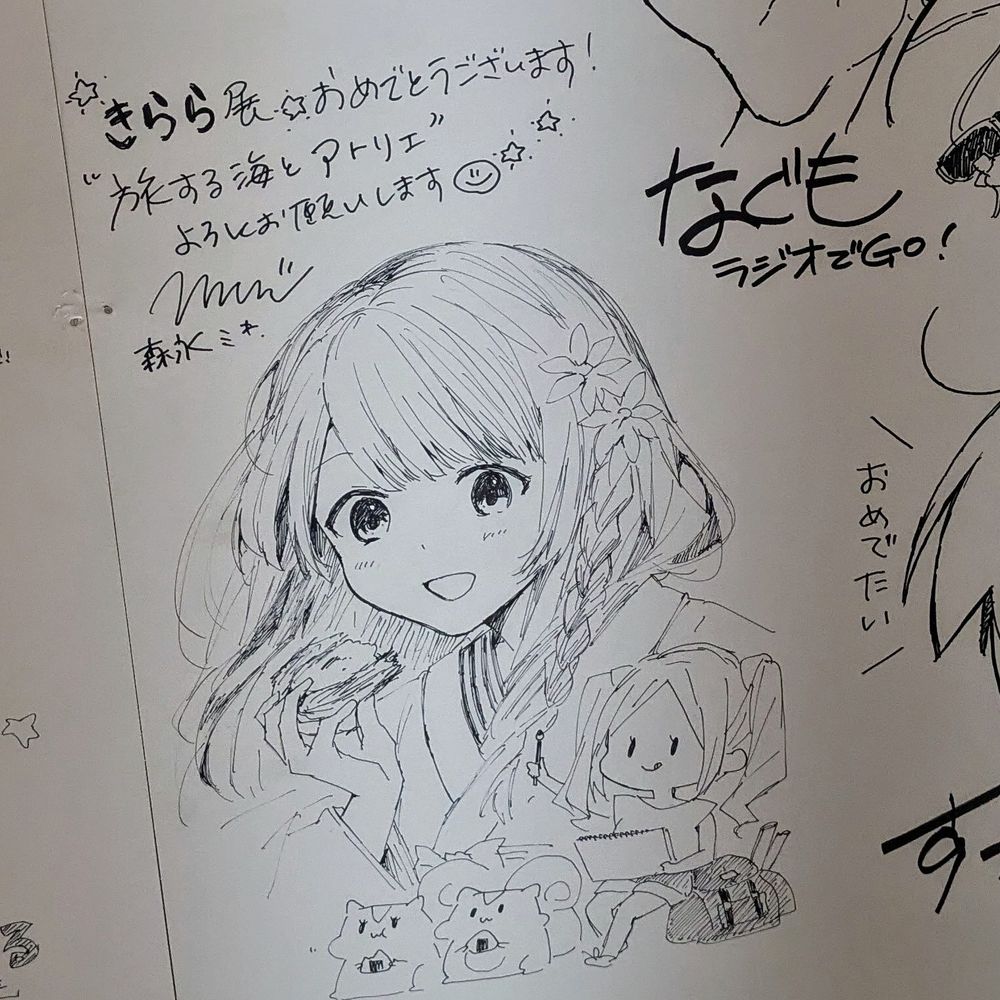 きらら展☆おめでとうございます!
"旅する海とアトリエ"
よろしくお願いします
森永ミキ
なぐも
ラジオでGo!
おめでたい
す